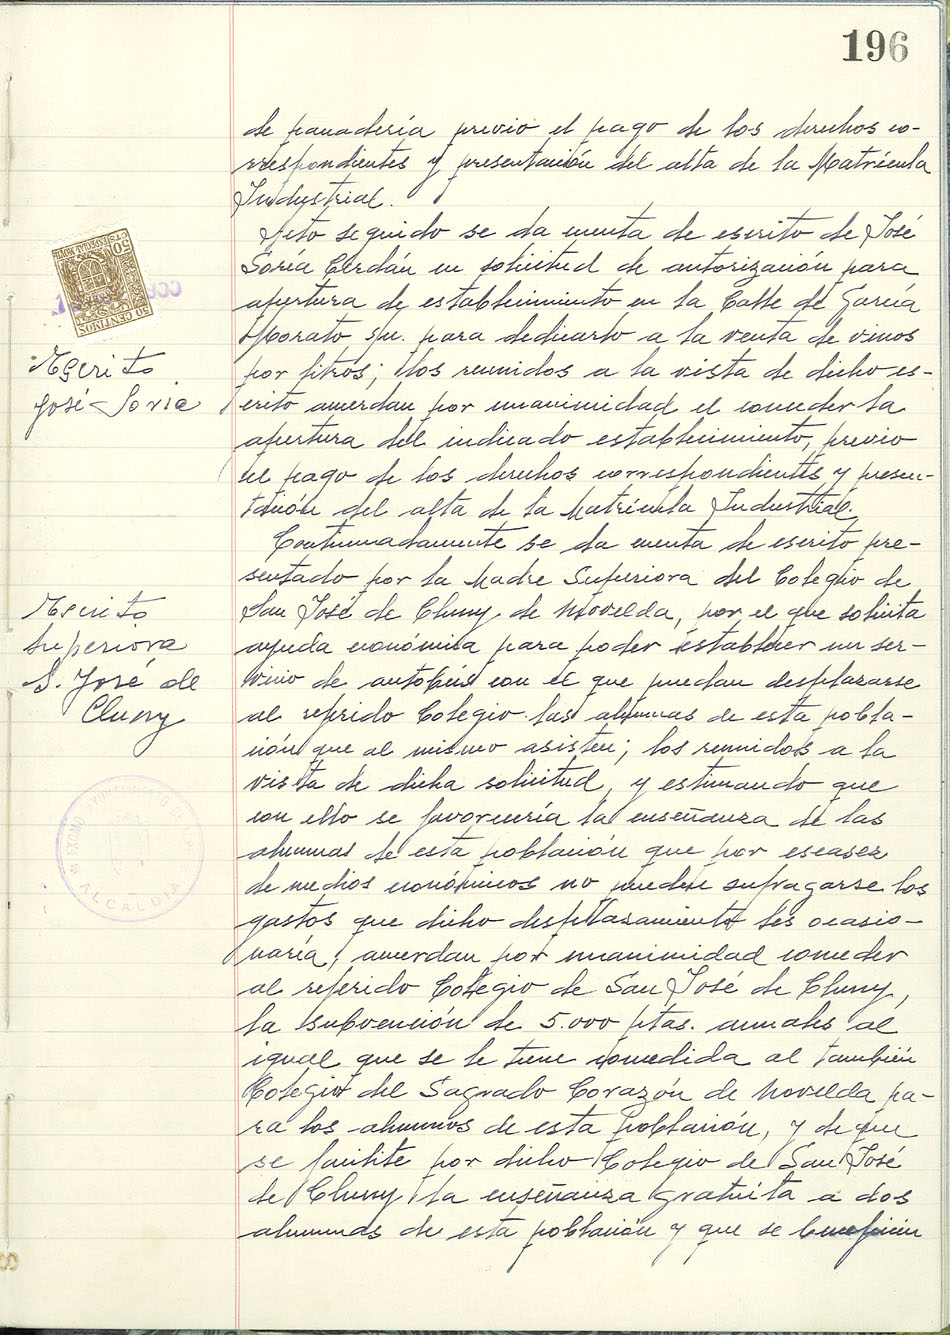 196
de panadería previo el pago de los derechos co-
rrespondientes y presentación del alta de la Matrícula
Industrial.
Acto seguido se da cuenta de escrito de José
Soria Cerdán en solicitud de autorización para
apertura de establecimiento en la Calle de García
Morato s/n. para dedicarlo a la venta de vinos
por litros; los reunidos a la vista de dicho es-
crito acuerdan por unanimidad el conceder la
apertura del indicado establecimiento, previo
el pago de los derechos correspondientes y presen-
tación del alta de la Matrícula Industrial.
Continuadamente se da cuenta de escrito pre-
sentado por la Madre Superiora del Colegio de
San José de Cluny de Novelda, por el que solicita
ayuda económica para poder establecer un ser-
vicio de autobús con el que puedan desplazarse
al referido Colegio las alumnas de esta pobla-
ción que al mismo asisten; los reunidos a la
vista de dicha solicitud, y estimando que
con ello se favorecería la enseñanza de las
alumnas de esta población que por escasez
de medios económicos no pueden sufragarse los
gastos que dicho desplazamiento les ocasio-
naría, acuerdan por unanimidad conceder
al referido Colegio de San José de Cluny,
la subvención de 5.000 ptas. anuales al
igual que se le tiene concedida al también
Colegio del Sagrado Corazón de Novelda pa-
ra los alumnos de esta población, y de que
se facilite por dicho Colegio de San José
de Cluny la enseñanza gratuita a dos
alumnas de esta población y que se beneficien
50 CENTIMOS
50
CTS ESPECIAL MOVIL
Escrito
José Soria
Escrito
Superiora
S. José de
Cluny
EXCMO AYUNTAMIENTO DE
ALCALDIA